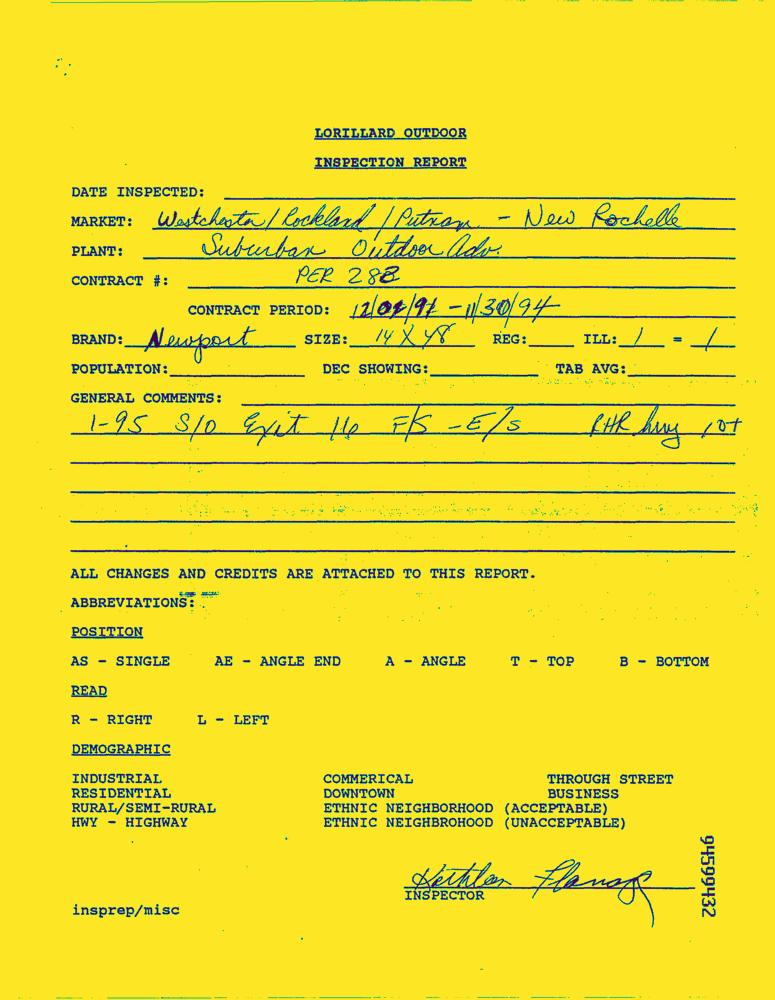 LORILLARD OUTDOOR
INSPECTION REPORT
DATE INSPECTED:
MARKET: Westchester / Rockland / Putnam - New Rochelle
PLANT: Suburban Outdoor Adv.
CONTRACT #: PER 28B
CONTRACT PERIOD: 12/01/91 - 11/30/94
BRAND: Newport SIZE: 14 X 48 REG: ILL: 1 = 1
POPULATION: DEC SHOWING: TAB AVG:
GENERAL COMMENTS:
1-95 S/O Exit 16 F/S - E/S RHR hwy
ALL CHANGES AND CREDITS ARE ATTACHED TO THIS REPORT.
ABBREVIATIONS:
POSITION
AS - SINGLE AE - ANGLE END A - ANGLE T - TOP B - BOTTOM
READ
R - RIGHT L - LEFT
DEMOGRAPHIC
INDUSTRIAL COMMERICAL THROUGH STREET
RESIDENTIAL DOWNTOWN BUSINESS
RURAL/SEMI-RURAL ETHNIC NEIGHBORHOOD (ACCEPTABLE)
HWY - HIGHWAY ETHNIC NEIGHBROHOOD (UNACCEPTABLE)
Kathleen Flanag
INSPECTOR
insprep/misc
94599432